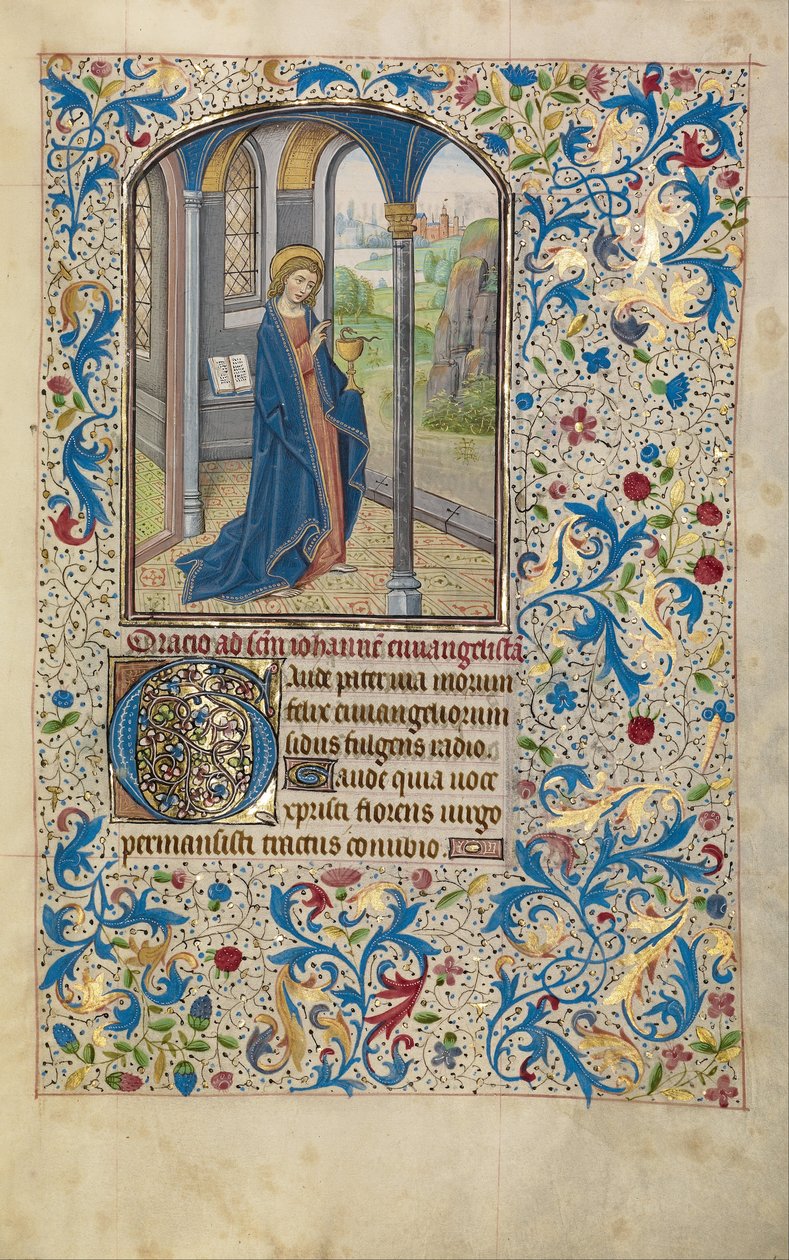 Oracio ad scm̄ iohannē euuangelistā.
Gaude pater via morum
felix euuangeliorum
sidus fulgens radio.
Gaude quia uoce
xpristi florens uirgo
permansisti tractus conubio.